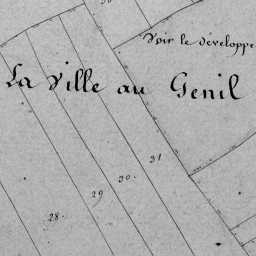 Voir le développe
La Ville au Genil
31
30.
29
28.